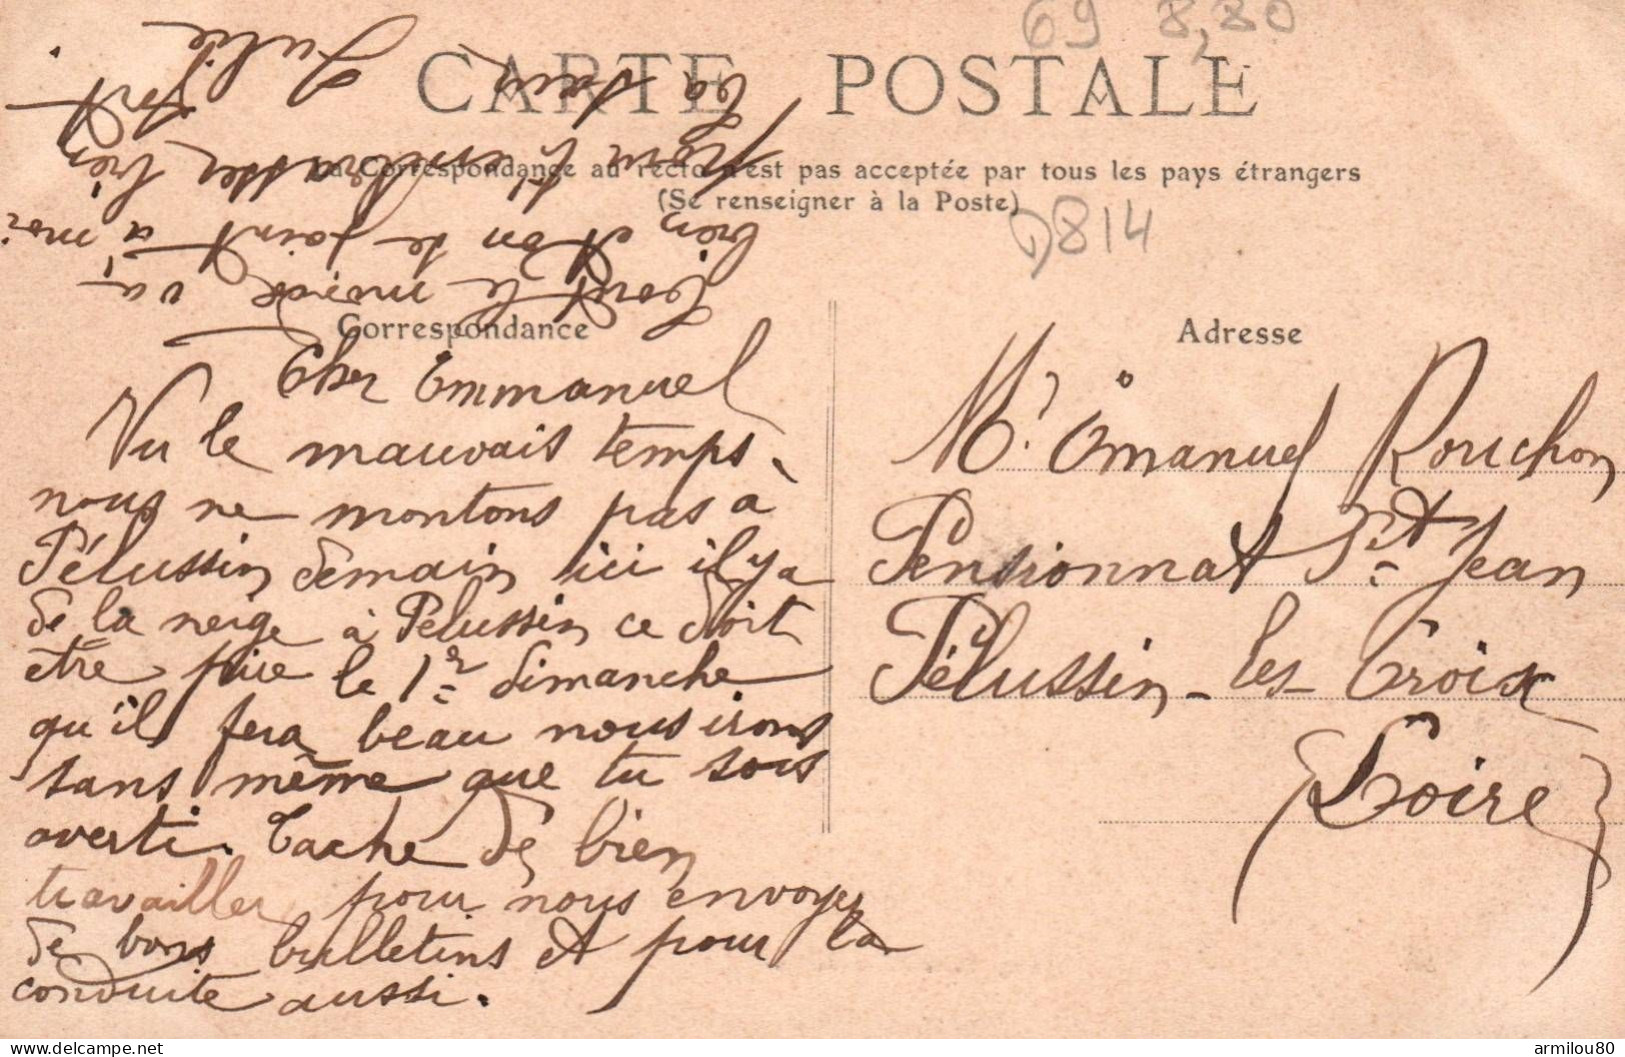 69 8,80
CARTE POSTALE
La Correspondance au recto n'est pas acceptée par tous les pays étrangers
(Se renseigner à la Poste)
9814
Correspondance
Adresse
Cher Emmanuel
Vu le mauvais temps
nous ne montons pas à
Pélussin demain, ici il y a
de la neige à Pélussin ce doit
être pire le 1er dimanche
qu'il fera beau nous irons
sans même que tu sois
averti. Tache de bien
travailler pour nous envoyer
de bons bulletins et pour la
conduite aussi.
Tout le monde va
bien et on se joint à moi
pour t'embrasser bien fort
Ta sœur
Julie
Mr. Emanuel Rouchon
Pensionnat St Jean
Pélussin-les-Croix
(Loire)
armilou80